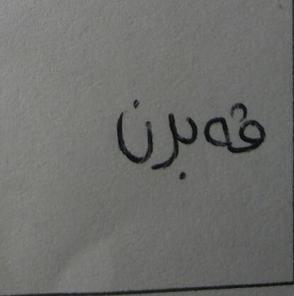 قەبرن